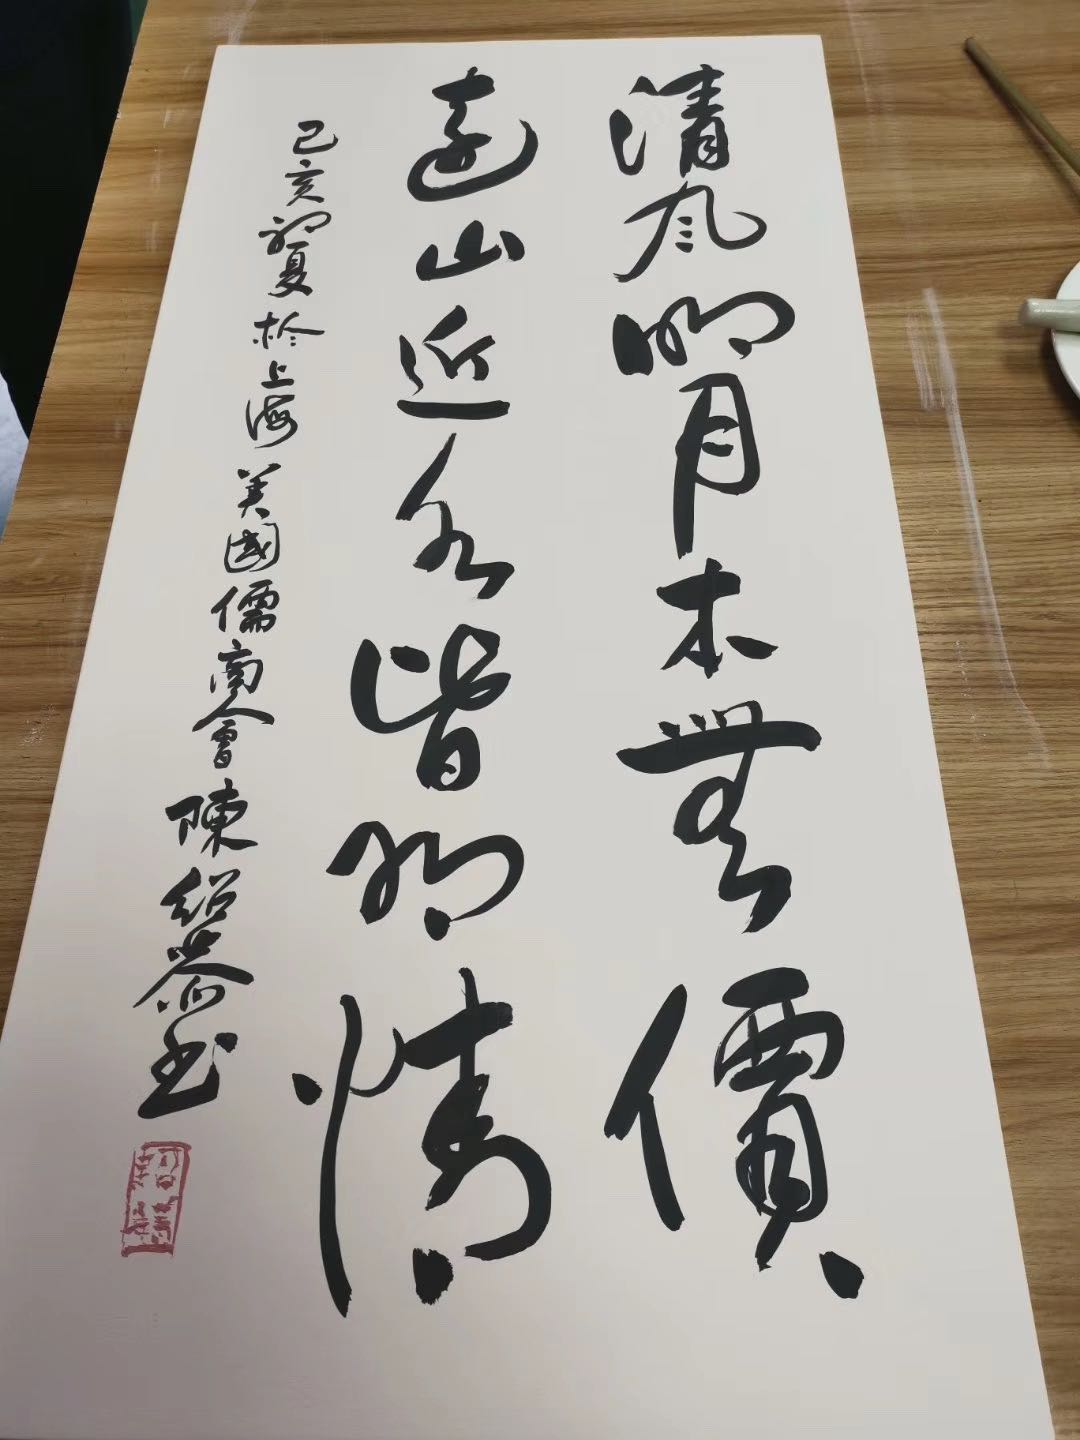 清風明月本無價
遠山近水皆有情
己亥初夏於上海美國儒商會陳紹恭书